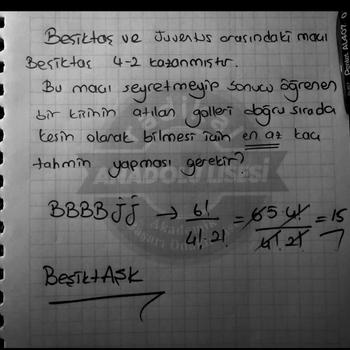 Beşiktaş ve Juventus arasındaki maçı
Beşiktaş 4-2 kazanmıştır.
Bu maçı seyretmeyip sonucu öğrenen
bir kişinin atılan golleri doğru sırada
kesin olarak bilmesi için en az kaç
tahmin yapması gerekir?
ANADOLU LİSESİ
BBBBJJ → 6!/4!.2! = 6.5.4!/4!.2! = 15
BeşiktAŞK